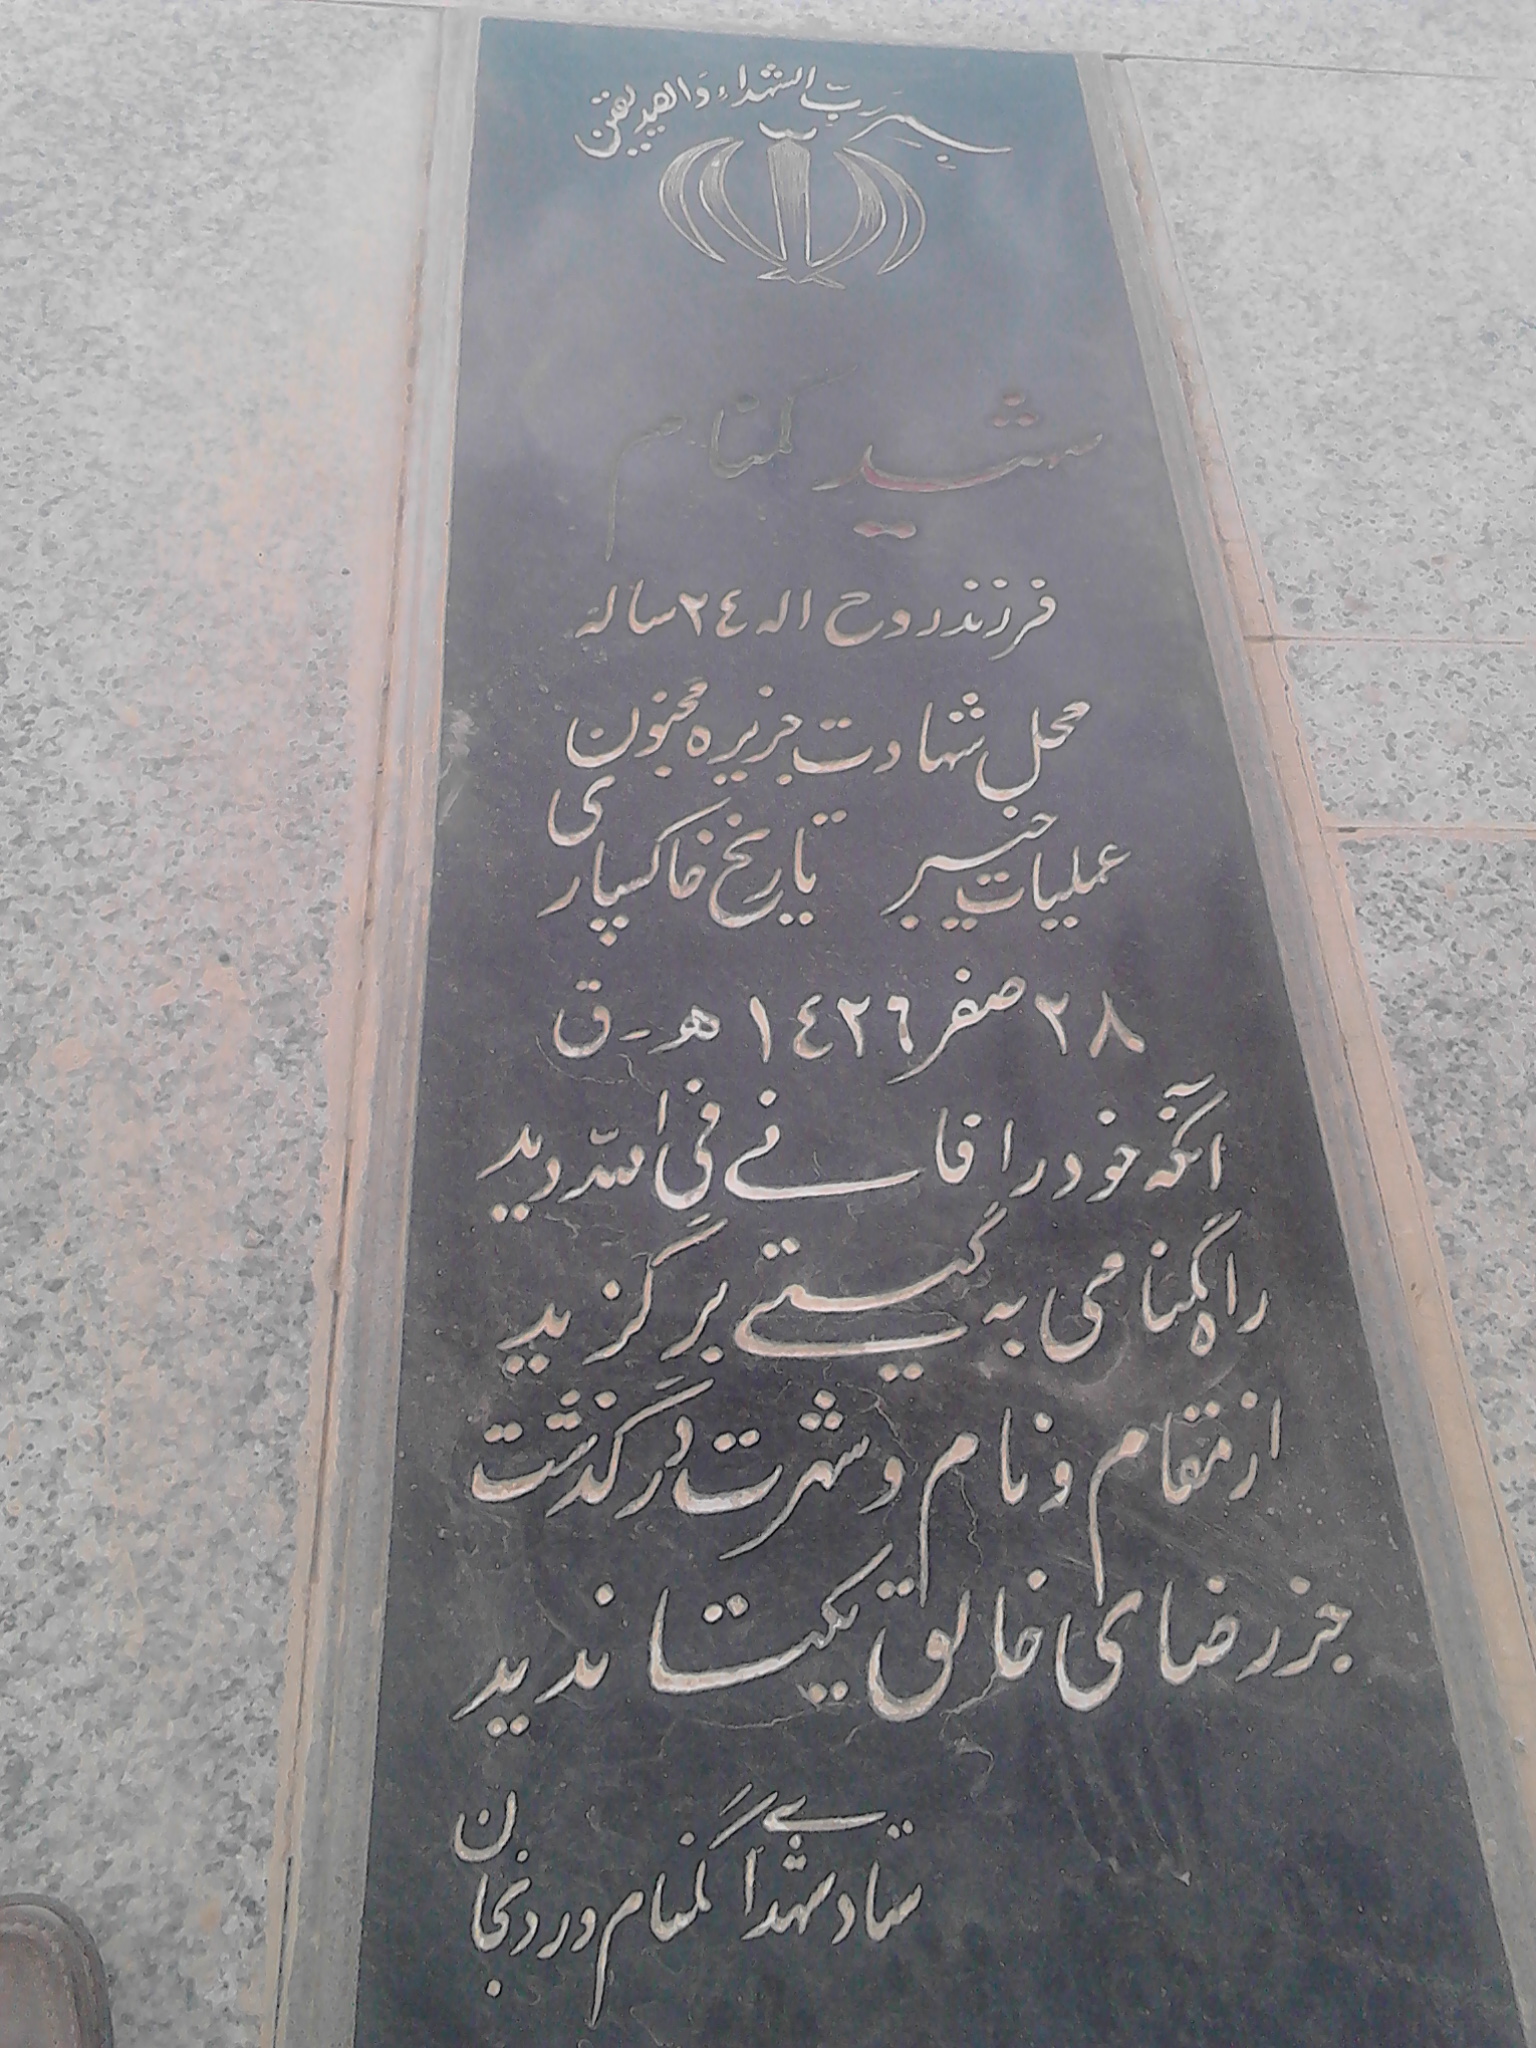 بسم رب الشهداء والصدیقین
شهید گمنام
فرزند روح اله ٢٤ ساله
محل شهادت جزیره مجنون
عملیات خیبر تاریخ خاکسپاری
٢٨ صفر ١٤٢٦ ه-ق
آنکه خود را فانی فی الله دید
راه گمنامی به گیتی برگزید
از مقام و نام و شهرت درگذشت
جز رضای خالق یکتا ندید
ستاد شهدای گمنام وردنجان